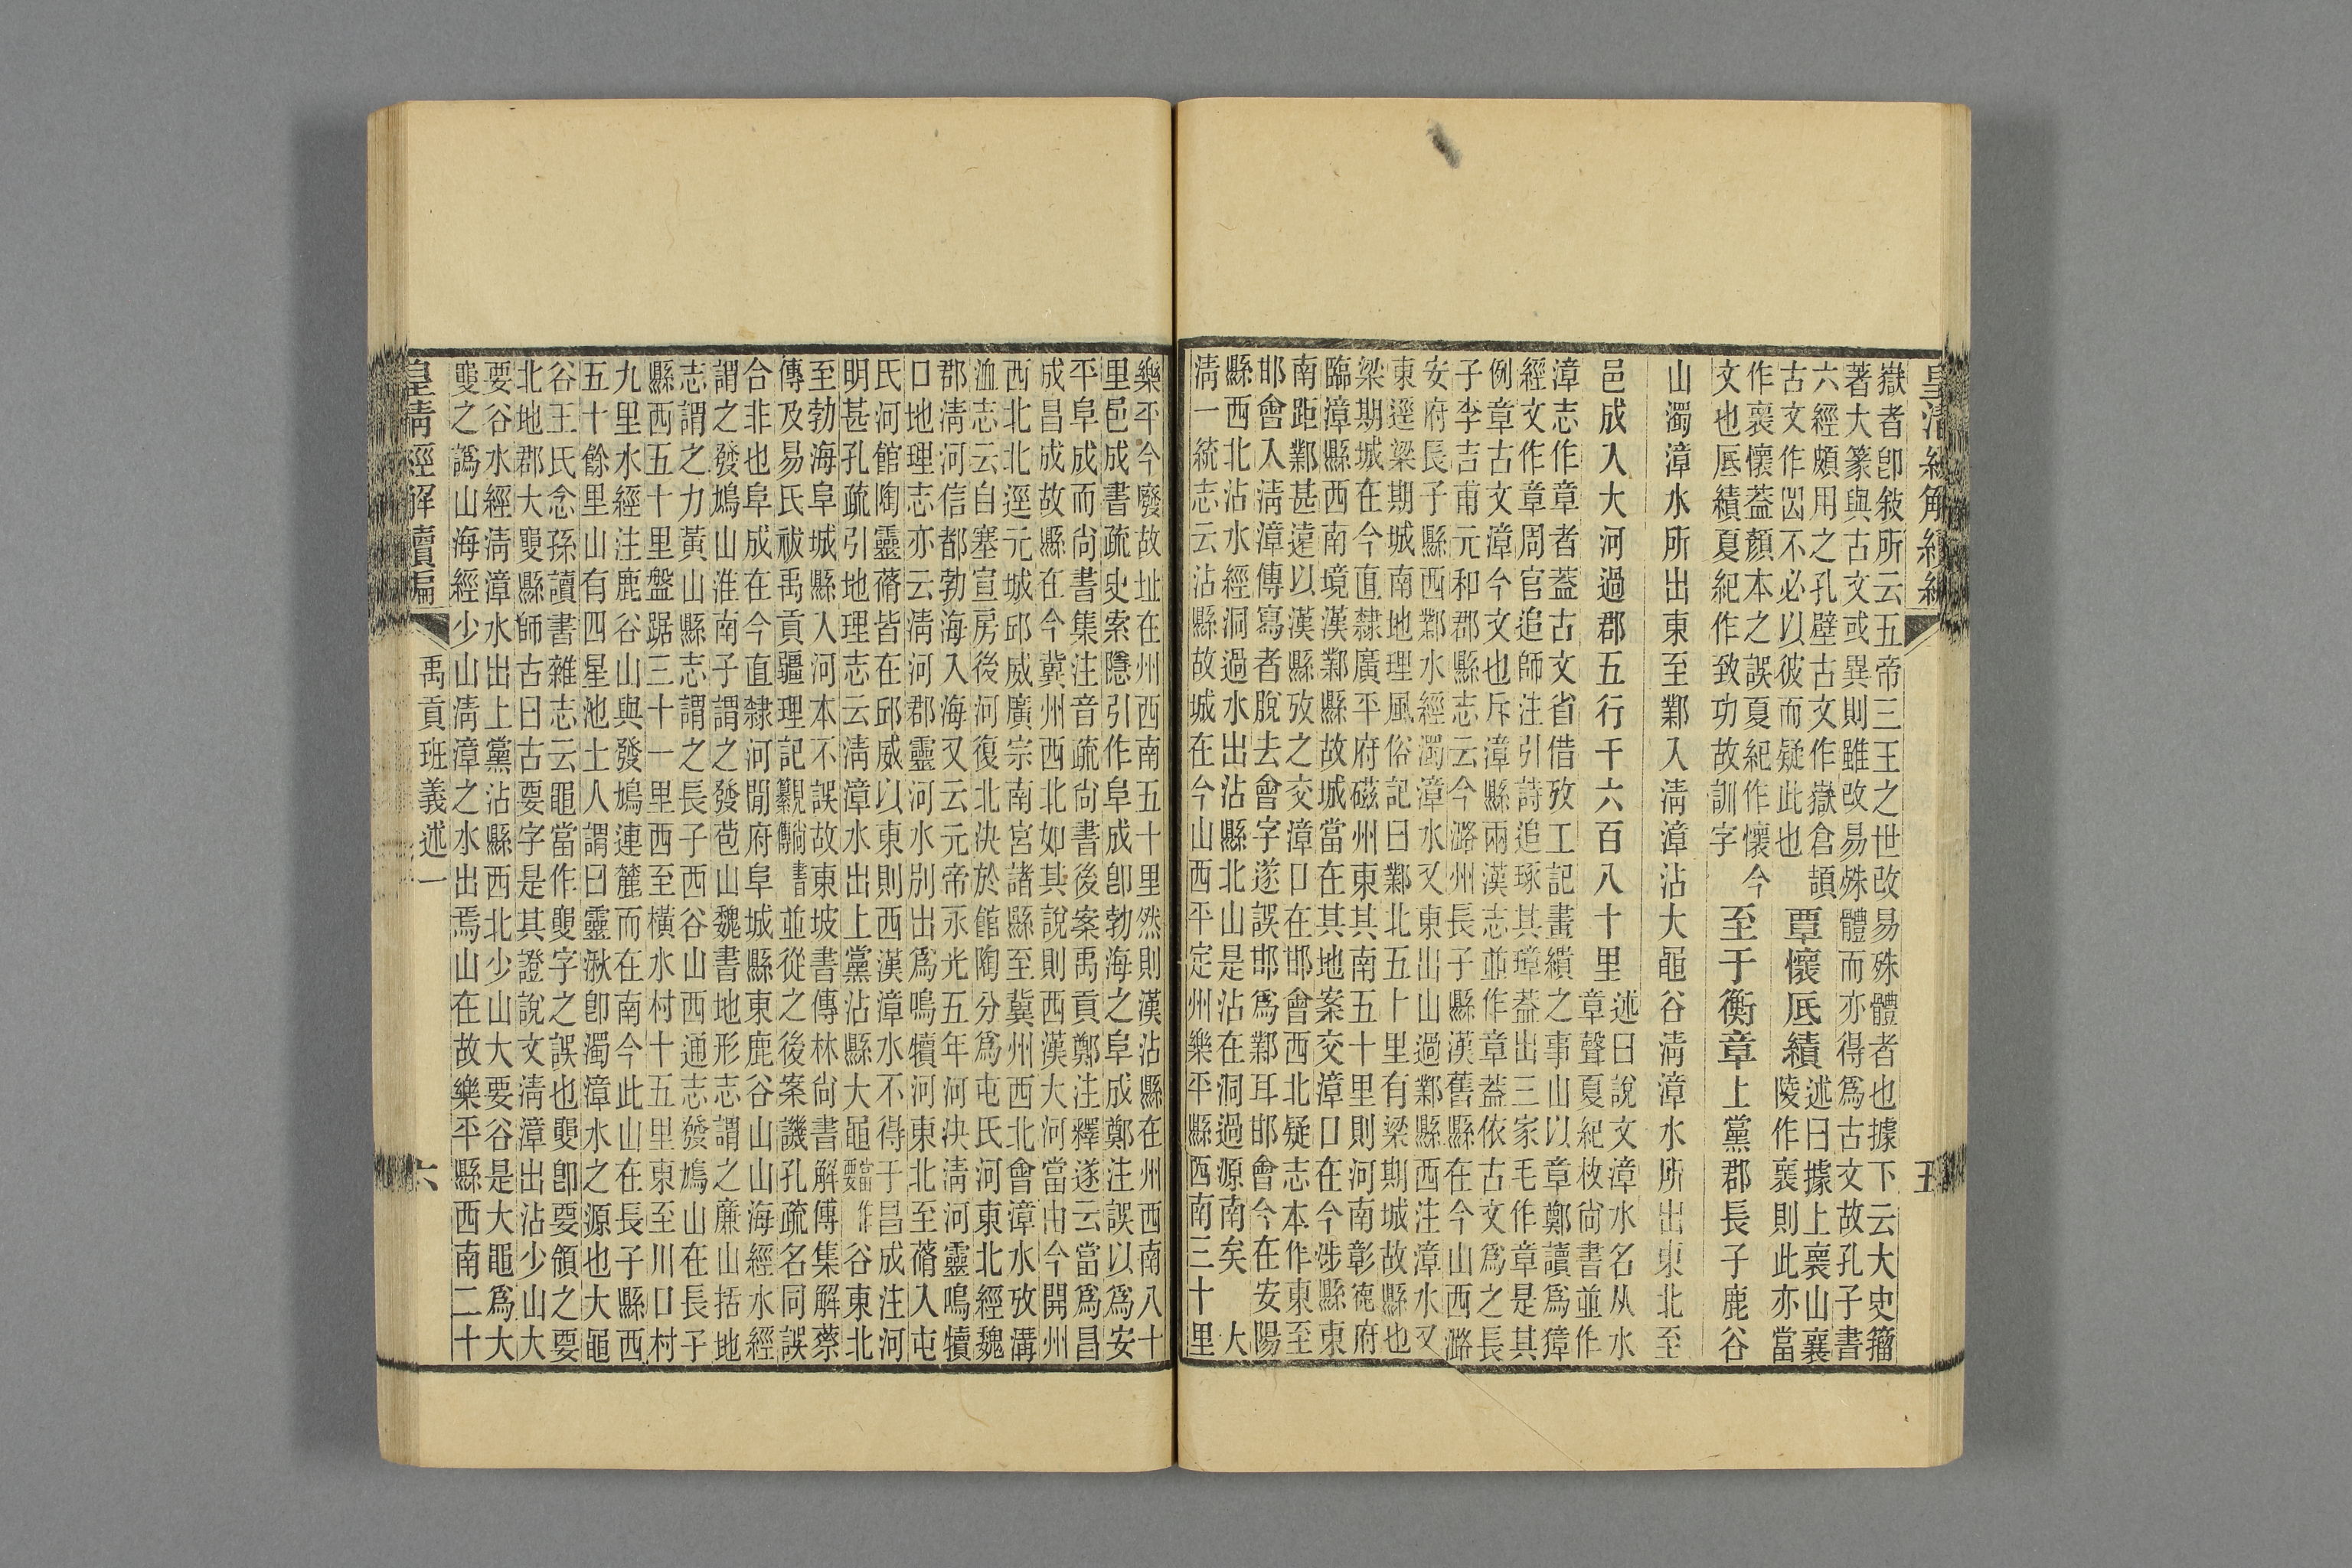 皇淸經解續編
五
嶽者卽敍所云五帝三王之世改易殊體者也據下云大史籀
著大篆與古文或異則雖改易殊體而亦得爲古文故孔子書
六經頗用之孔壁古文作嶽倉頡
古文作㞷不必以彼而疑此也
覃懷厎績
述曰據上襄山襄
陵作襄則此亦當
作襄懷葢顏本之誤夏紀作懷今
文也厎績夏紀作致功故訓字
至于衡章上黨郡長子鹿谷
山濁漳水所出東至鄴入淸漳沾大黽谷淸漳水所出東北至
邑成入大河過郡五行千六百八十里
述曰說文漳水名从水
章聲夏紀枚尙書並作
漳志作章者葢古文省借攷工記畫繢之事山以章鄭讀爲獐
經文作章周官追師注引詩追琢其璋葢出三家毛作章是其
例章古文漳今文也斥漳縣兩漢志並作章葢依古文爲之長
子李吉甫元和郡縣志云今潞州長子縣漢舊縣在今山西潞
安府長子縣西鄴水經濁漳水又東出山過鄴縣西注漳水又
東逕梁期城南地理風俗記曰鄴北五十里有梁期城故縣也
梁期城在今直隸廣平府磁州東其南五十里則河南彰德府
臨漳縣西南境漢鄴縣故城當在其地案交漳口在今涉縣東
南距鄴甚遠以漢縣攷之交漳口在邯會西北疑志本作東至
邯會入淸漳傳寫者脫去會字遂誤邯爲鄴耳邯會今在安陽
縣西北沾水經洞過水出沾縣北山是沾在洞過源南矣 大
淸一統志云沾縣故城在今山西平定州樂平縣西南三十里
樂平今廢故址在州西南五十里然則漢沾縣在州西南八十
里邑成書疏史索隱引作阜成卽勃海之阜成鄭注誤以爲安
平阜成而尙書集注音疏尙書後案禹貢鄭注釋遂云當爲昌
成昌成故縣在今冀州西北如其說則西漢大河當由今開州
西北北逕元城邱威廣宗南宮諸縣至冀州西北會漳水攷溝
洫志云自塞宣房後河復北決於館陶分爲屯氏河東北經魏
郡淸河信都勃海入海又云元帝永光五年河決淸河靈鳴犢
口地理志亦云淸河郡靈河水別出爲鳴犢河東北至蓨入屯
氏河館陶靈蓨皆在邱威以東則西漢漳水不得于昌成注河
明甚孔疏引地理志云淸漳水出上黨沾縣大黽當作要谷東北
至勃海阜城縣入河本不誤故東坡書傳林尙書解傅集解蔡
傳及易氏祓禹貢疆理記觀㸑尙書並從之後案譏孔疏名同誤
合非也阜成在今直隸河閒府阜城縣東鹿谷山山海經水經
謂之發鳩山淮南子謂之發苞山魏書地形志謂之廉山括地
志謂之力黃山縣志謂之長子西谷山西通志發鳩山在長子
縣西五十里盤踞三十一里西至橫水村十五里東至川口村
九里水經注鹿谷山與發鳩連麓而在南今此山在長子縣西
五十餘里山有四星池土人謂曰靈湫卽濁漳水之源也大黽
谷王氏念孫讀書雜志云黽當作䙴字之誤也䙴卽要領之要
北地郡大䙴縣師古曰古要字是其證說文淸漳出沾少山大
要谷水經淸漳水出上黨沾縣西北少山大要谷是大黽爲大
䙴之譌山海經少山淸漳之水出焉山在故樂平縣西南二十
皇淸經解續編
禹貢班義述一
六